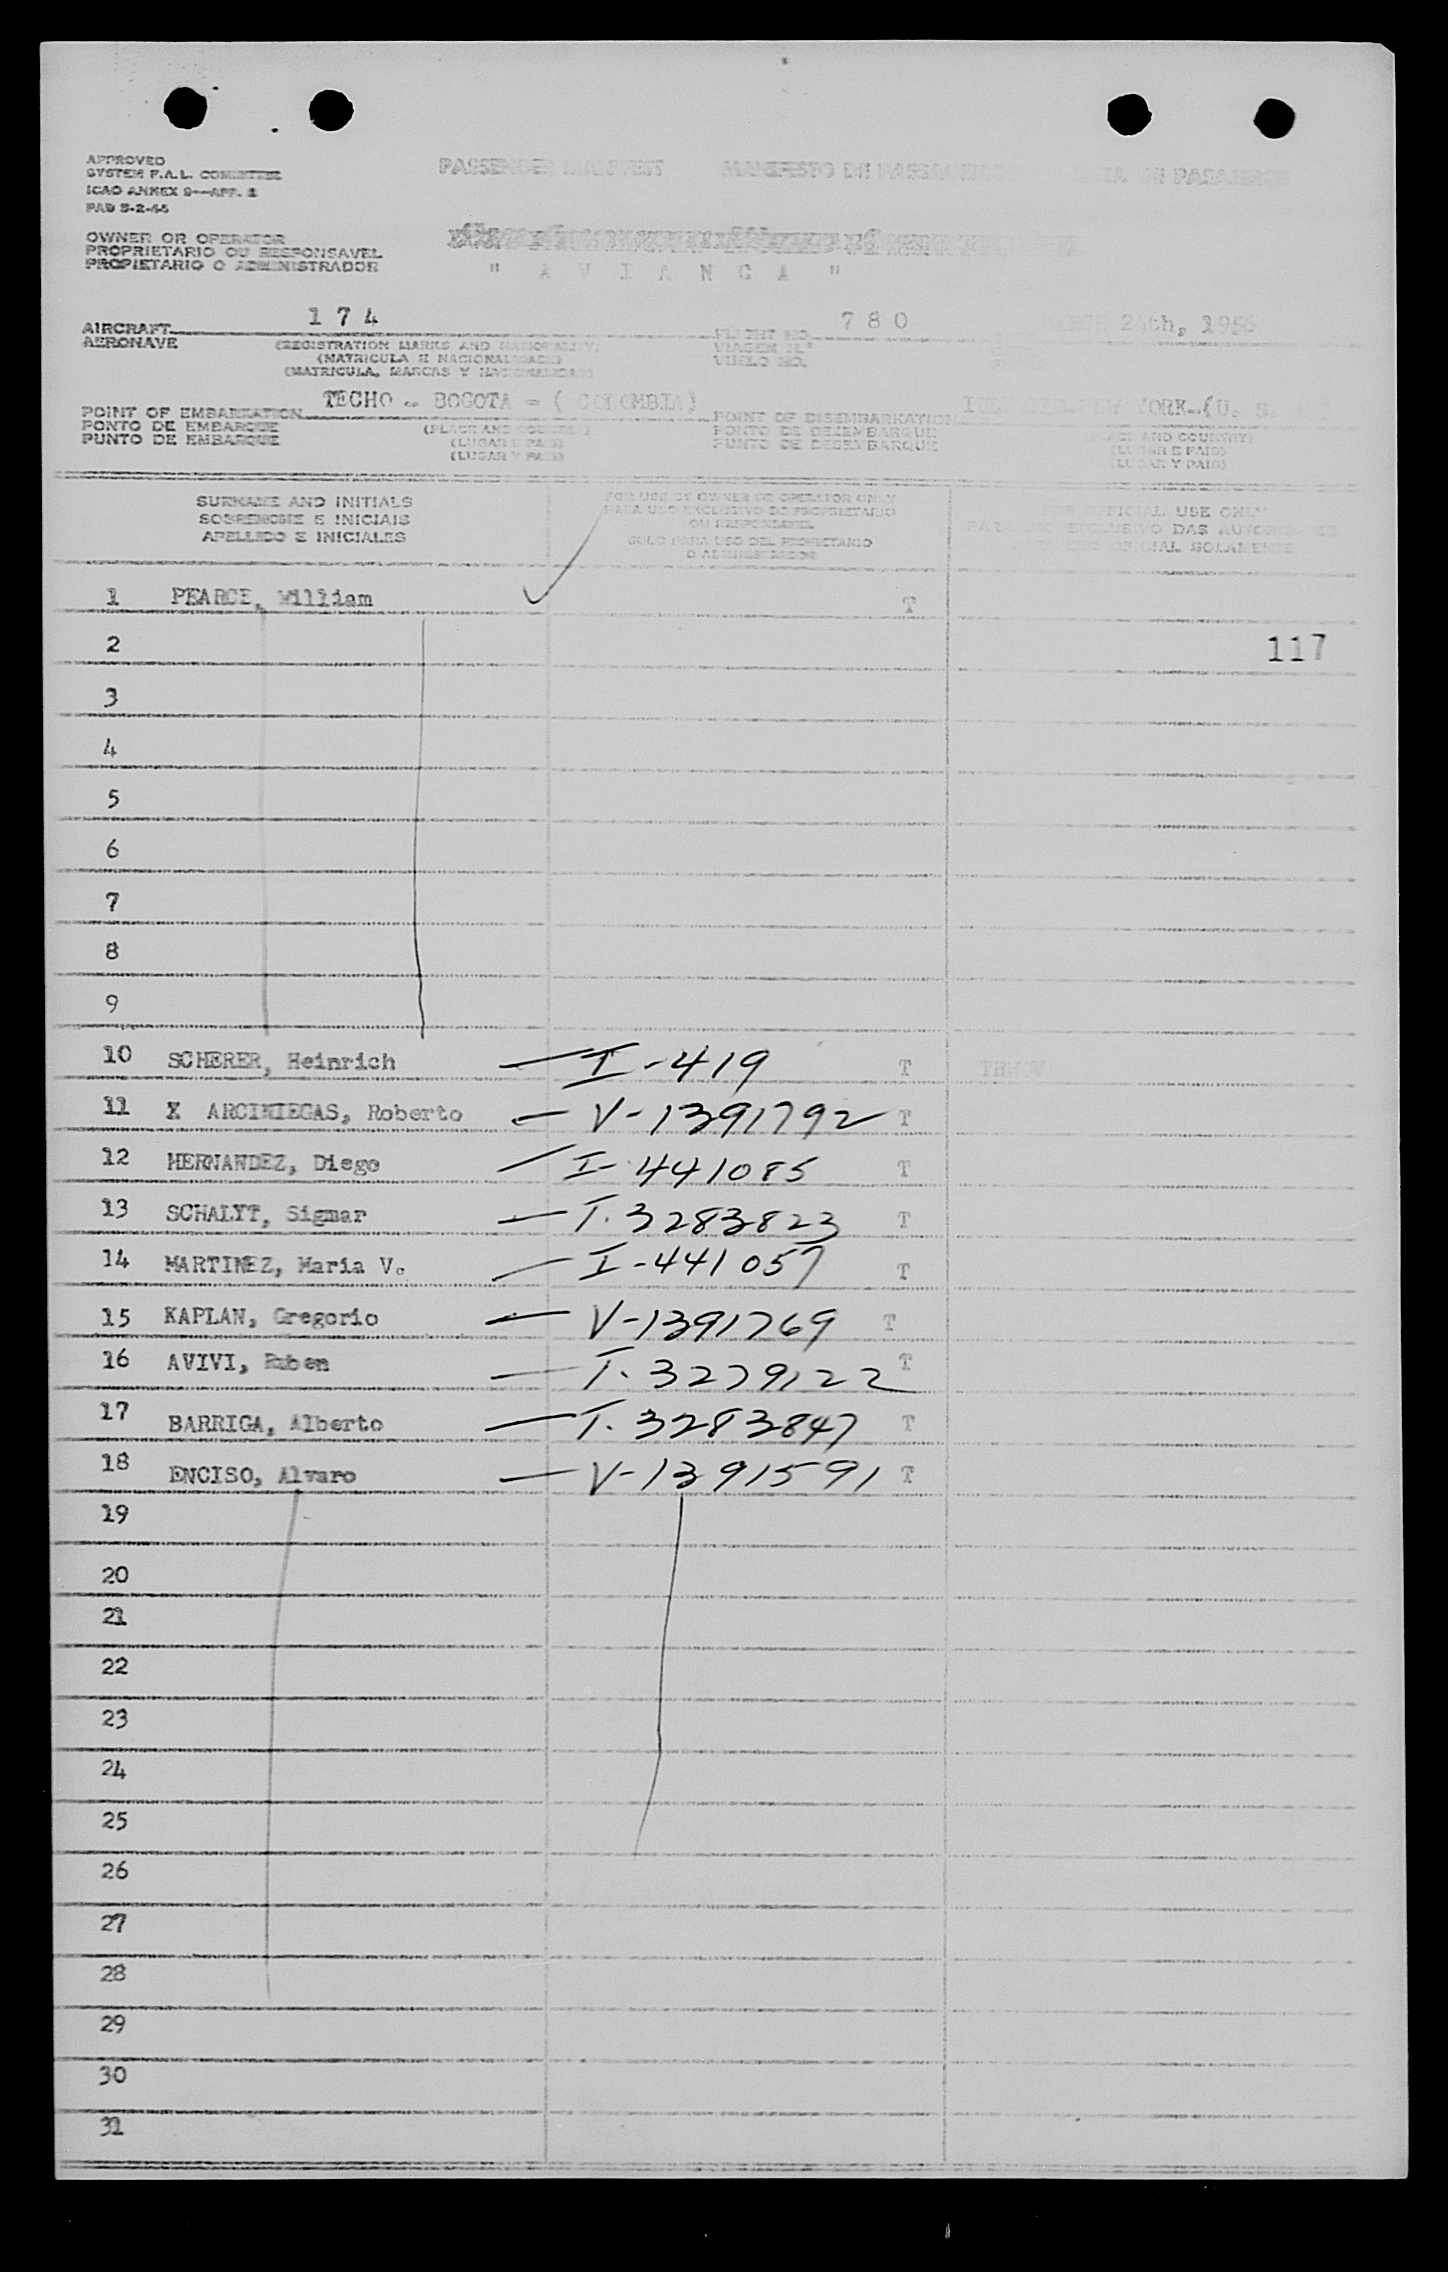 APPROVED
SYSTEM F.A.L. COMMITTEE
ICAO ANNEX 9—APP. 2
PAD 5-2-46
PASSENGER MANIFEST MANIFESTO DE PASSAGEIROS LISTA DE PASAJEROS
OWNER OR OPERATOR
PROPRIETARIO OU RESPONSAVEL
PROPIETARIO O ADMINISTRADOR
" A V I A N C A "
AIRCRAFT 1 7 4
AERONAVE
(REGISTRATION MARKS AND NATIONALITY)
(MATRICULA E NACIONALIDADE)
(MATRICULA, MARCAS Y NACIONALIDAD)
FLIGHT NO. 7 8 0
VIAGEM N.º
VUELO NO.
24th, 1956
POINT OF EMBARKATION TECHO - BOGOTA - ( COLOMBIA)
PONTO DE EMBARQUE
PUNTO DE EMBARQUE
(PLACE AND COUNTRY)
(LUGAR E PAIS)
(LUGAR Y PAIS)
POINT OF DISEMBARKATION YORK-(U. S.
PONTO DE DESEMBARQUE
PUNTO DE DESEMBARQUE
(PLACE AND COUNTRY)
(LUGAR E PAIS)
(LUGAR Y PAIS)
SURNAME AND INITIALS
SOBRENOME E INICIAIS
APELLIDO E INICIALES
FOR USE BY OWNER OR OPERATOR ONLY
PARA USO EXCLUSIVO DO PROPRIETARIO
OU RESPONSAVEL
SOLO PARA USO DEL PROPIETARIO
O ADMINISTRADOR
OFFICIAL USE ONLY
PARA USO EXCLUSIVO DAS AUTORIDADES
USO OFICIAL SOLAMENTE
1 PEARCE, William T
2 117
3
4
5
6
7
8
9
10 SCHERER, Heinrich — I-419 T
11 X ARCINIEGAS, Roberto — V-1391792 T
12 HERNANDEZ, Diego — I-441085 T
13 SCHALYT, Sigmar — T.3283823 T
14 MARTINEZ, Maria V. — I-441057 T
15 KAPLAN, Gregorio — V-1391769 T
16 AVIVI, Ruben — T.3279122 T
17 BARRIGA, Alberto — T.3283847 T
18 ENCISO, Alvaro — V-1391591 T
19
20
21
22
23
24
25
26
27
28
29
30
31